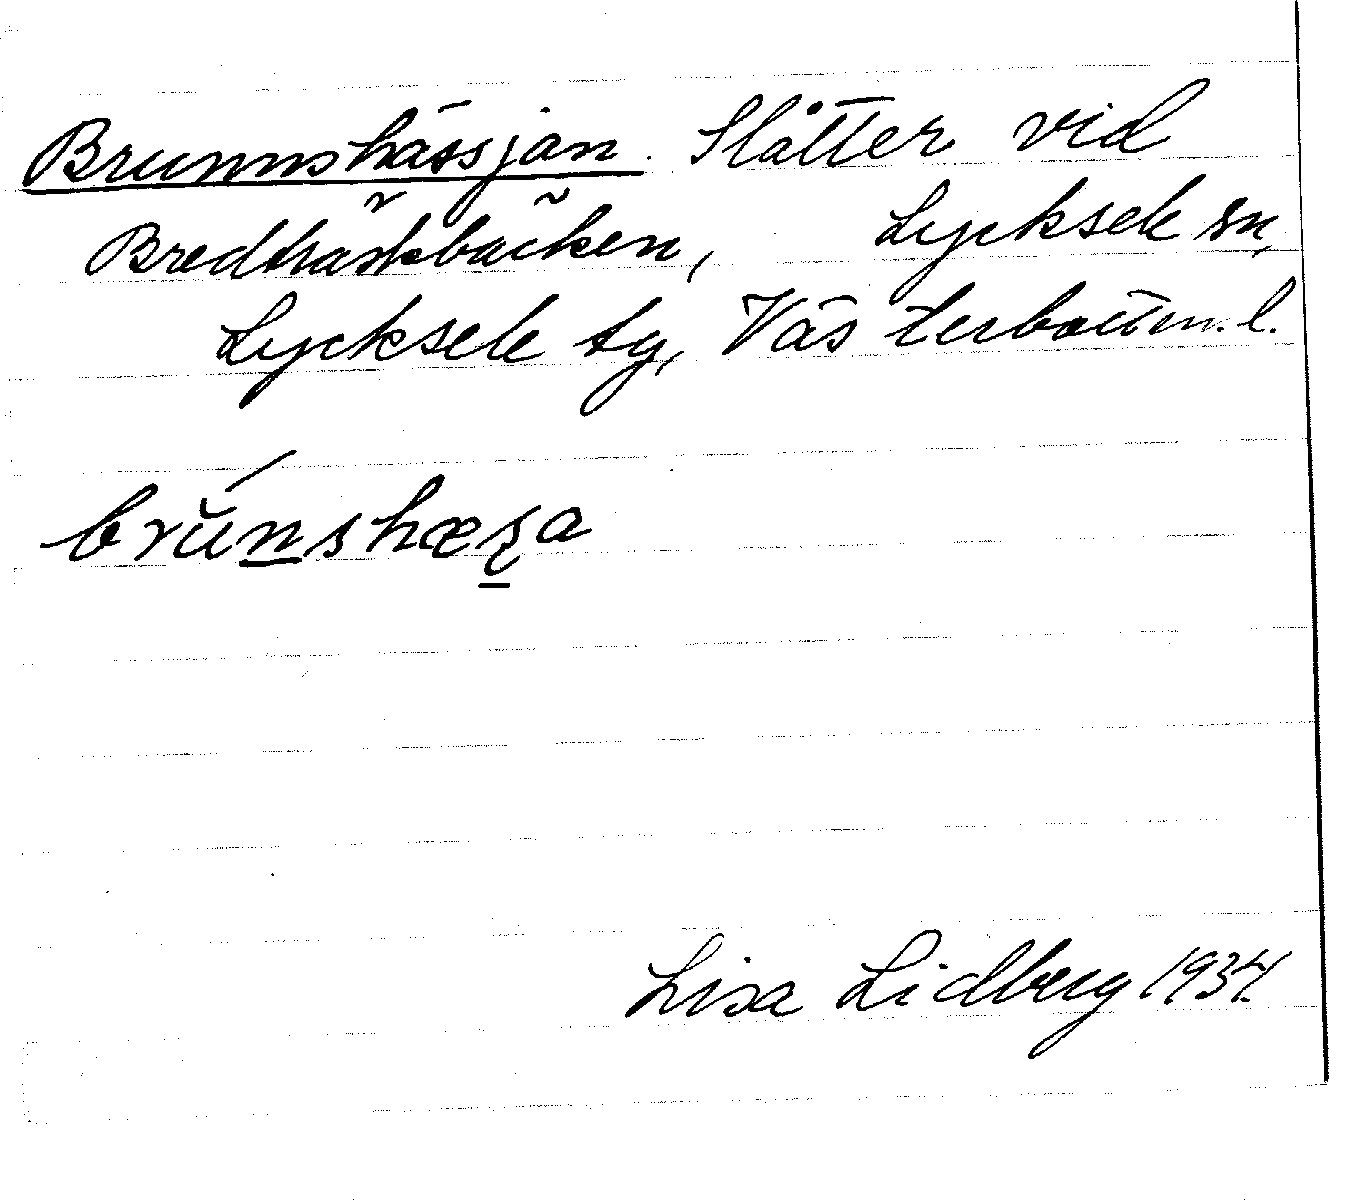 Brunnshässjan. Slåtter vid
Bredträskbäcken, Lycksele sn,
Lycksele tg, Västerbottn. l.
brŭ́nshæʂa
Lisa Lidberg 1934.